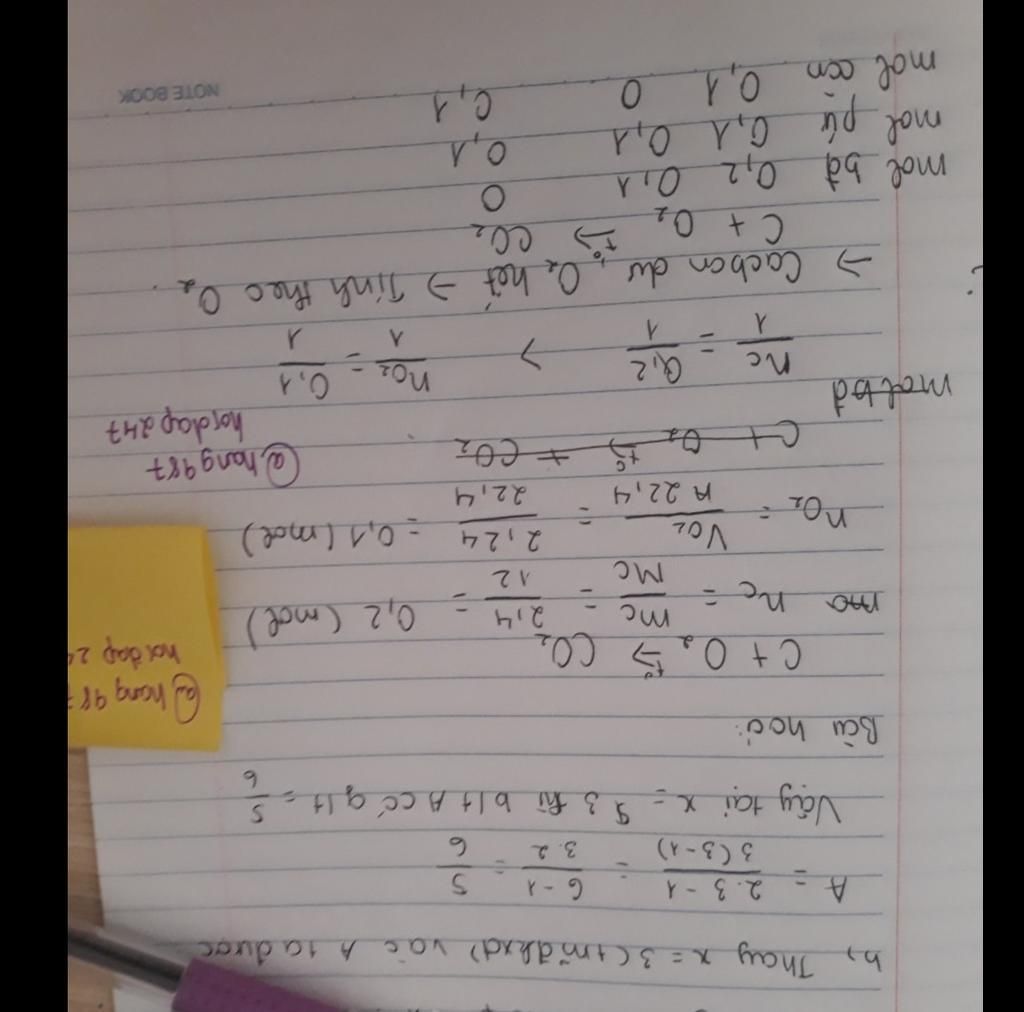 b, Thay x = 3 (tmđkxđ) vào A ta được
A = \frac{2.3-1}{3(3-1)} = \frac{6-1}{3.2} = \frac{5}{6}
Vậy tại x = 3 thì b/t A có g/t = \frac{5}{6}
Bài hoá:
@hang987
hoidap 24
C + O₂ \xrightarrow{t°} CO₂
n_C = \frac{m_C}{M_C} = \frac{2,4}{12} = 0,2 (mol)
n_{O₂} = \frac{V_{O₂}}{22,4} = \frac{2,24}{22,4} = 0,1 (mol)
C + O₂ \xrightarrow{t°} + CO₂
@hang987
hoidap247
mol bđ
\frac{n_C}{1} = \frac{0,2}{1} > \frac{n_{O₂}}{1} = \frac{0,1}{1}
→ Cacbon dư, O₂ hết → Tính theo O₂.
C + O₂ \xrightarrow{t°} CO₂
mol bđ 0,2 0,1 0
mol pứ 0,1 0,1 0,1
mol còn 0,1 0 0,1
NOTE BOOK